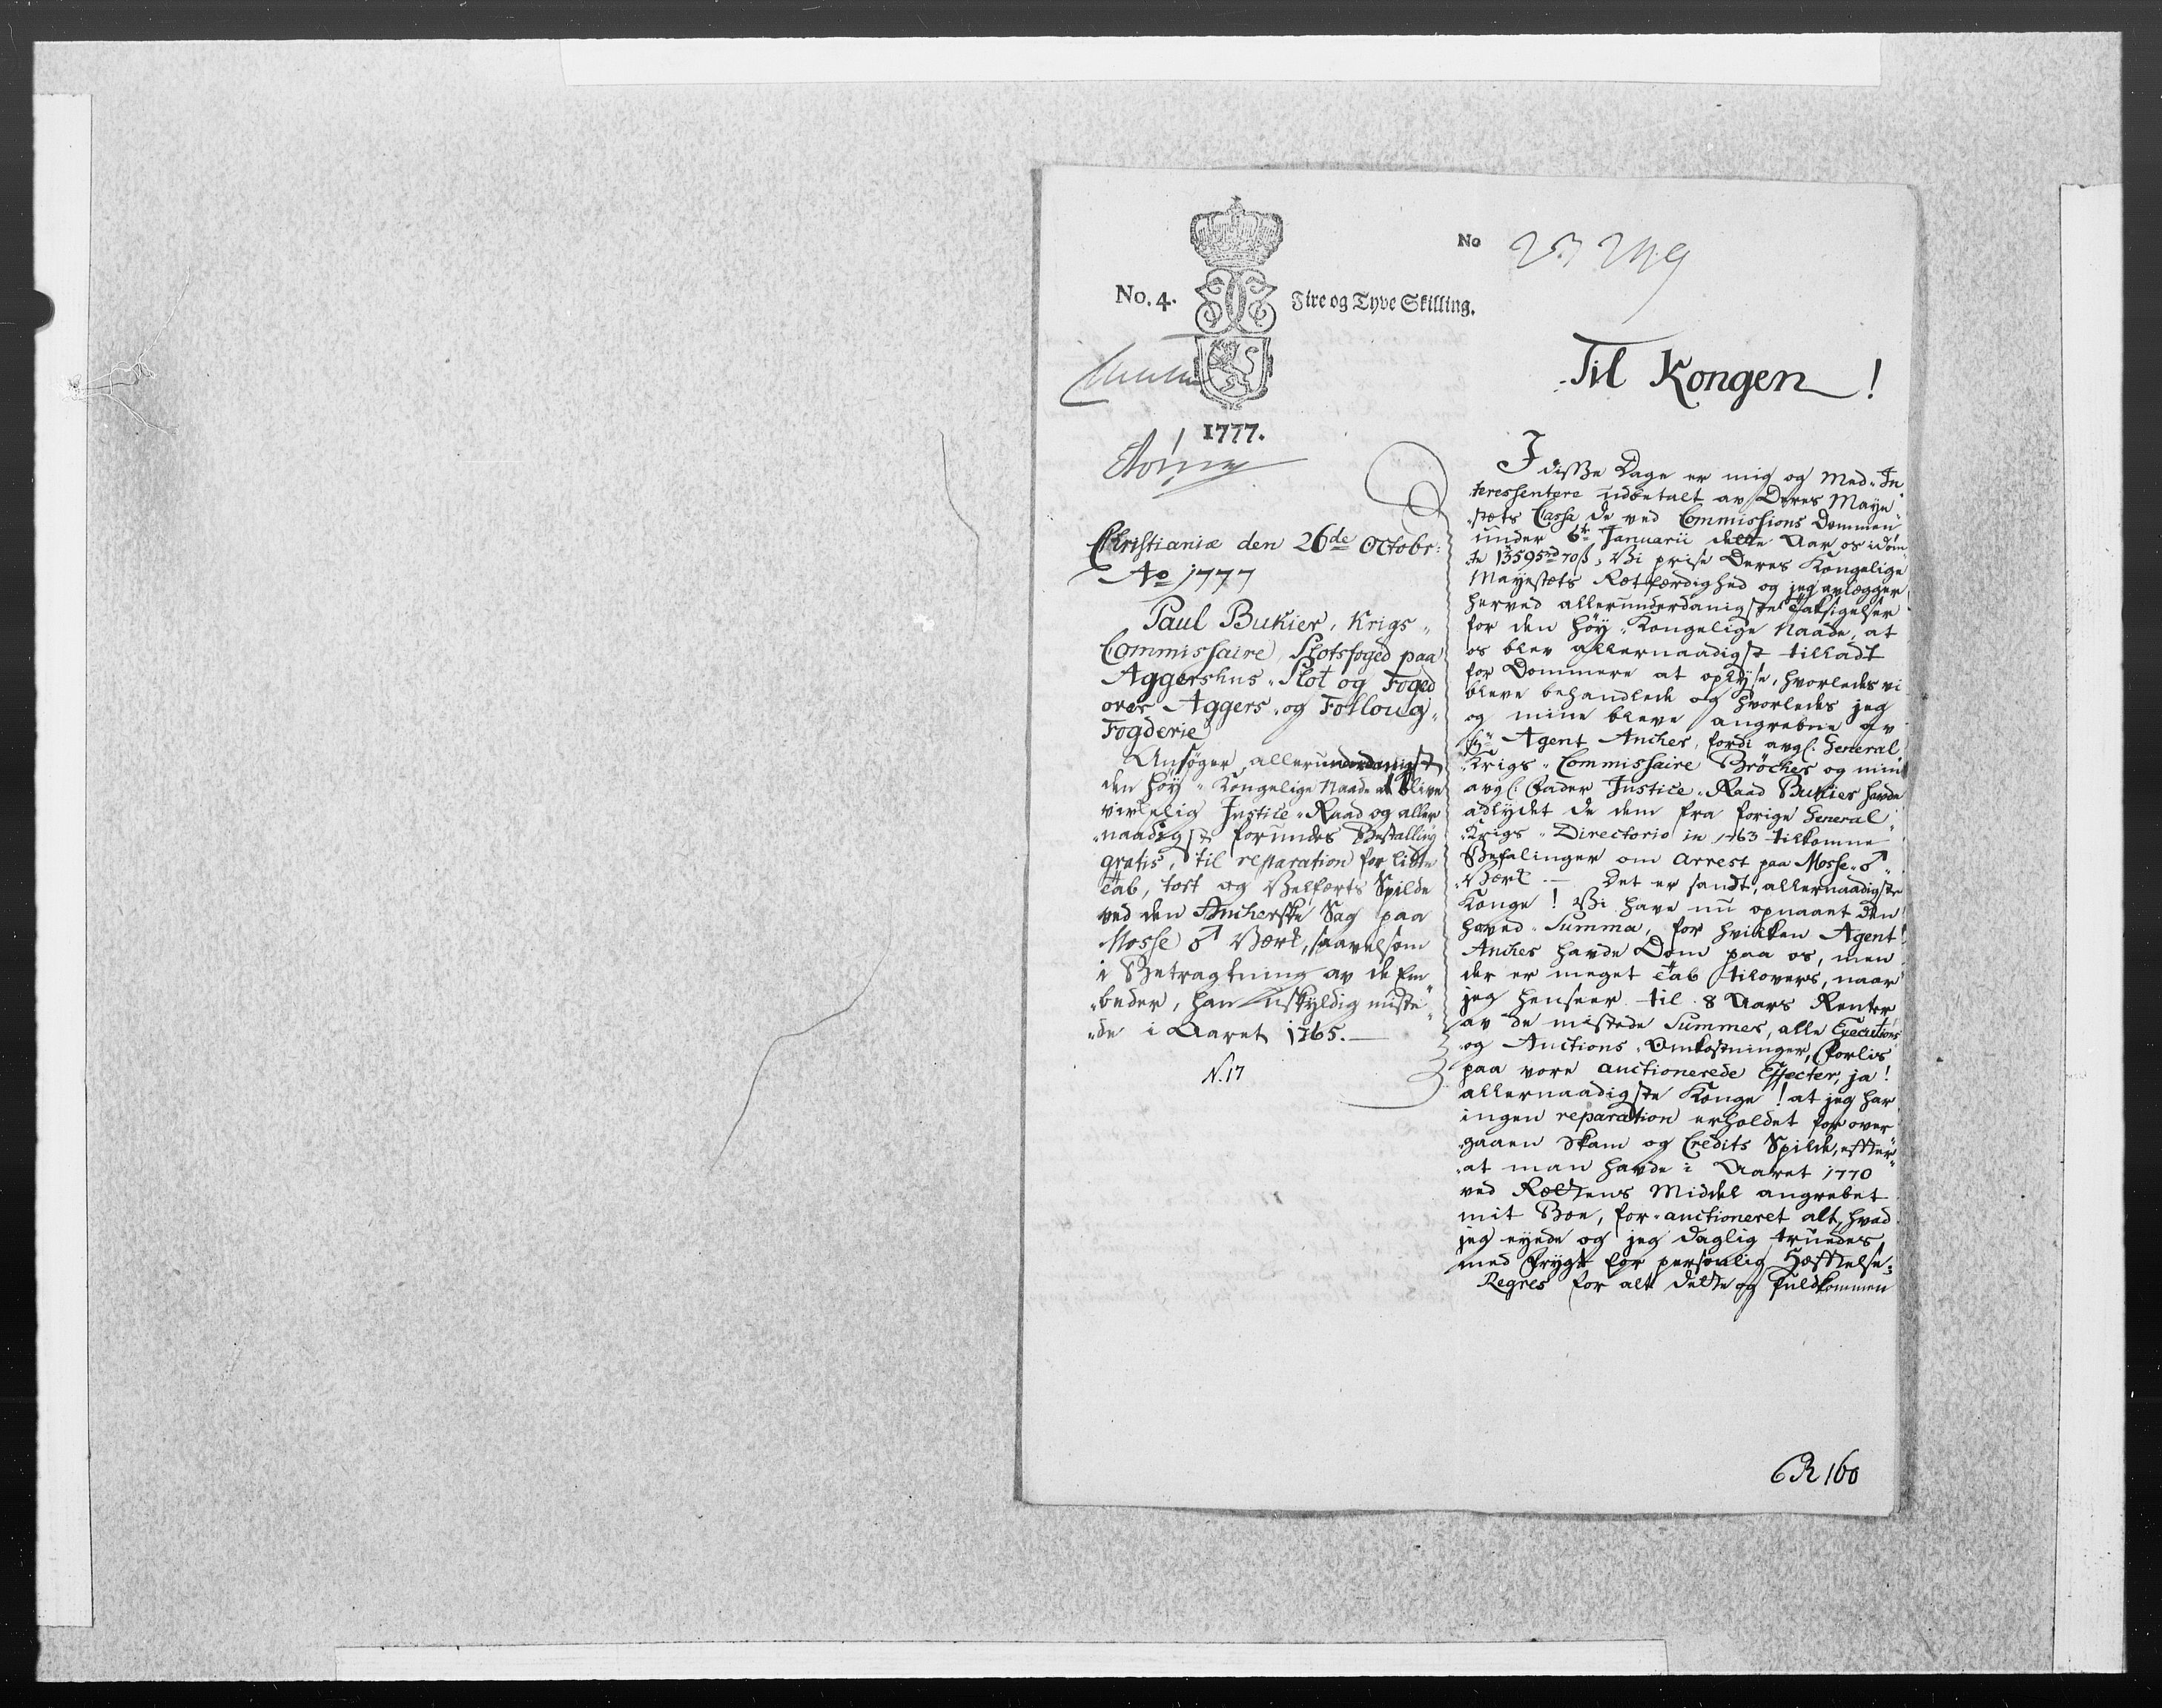 No
No. 4.
Fire og Tyve Skilling.
1777.
Til Kongen!
Christianiæ den 26de Octobr:
Ao 1777
Paul Bukier, Krigs-
Commissaire, Slotsfoged paa
Aggershus-Slot og Foged
over Aggers- og Folloug-
Fogderie
Ansøger allerunderdanigst
den Høy-Kongelige Naade at blive
virkelig Justice-Raad og aller
naadigst forundes Bestalling
gratis, til reparation for lidte
Tab, Tort og Velferts Spilde
ved den Ancherske Sag paa
Mosse ♂ Værk, saavelsom
i Betragtning av de Em-
beder, han uskyldig miste-
de i Aaret 1765.
N. 17
I disse Dage er mig og Med-In
teressentere udbetalt av Deres Maye
stæts Cassa de ved Commissions Dommen
under 6te Januarii dette Aar os idøm
te 13595rd 70ß, Vi prise Deres Kongelige
Mayestæts Retfærdighed og jeg avlægger
herved allerunderdanigste Taksigelser
for den Høy-Kongelige Naade, at
os blev allernaadigst tilladt
for Dommere at oplyse, hvorledes vi
bleve behandlede og hvorledes jeg
og mine bleve angrebne av
Agent Ancher, fordi avgl. General
Krigs-Commissaire Bröcher og min
avgl. Fader Justice-Raad Bukier havde
adlydet de dem fra forige General
Krigs-Directorio in 1763 tilkomne
Befalinger om Arrest paa Mosse-♂
Værk — Det er sandt, allernaadigste
Konge! Vi have nu opnaaet den
Hoved-Summa, for hvilken Agent
Ancher havde Dom paa os, men
der er meget Tab tilovers, naar
jeg henseer til 8 Aars Renter
av de mistede Summer, alle Executions
og Auctions-Omkostninger, Forlis
paa vore auctionerede Effecter, ja!
allernaadigste Konge! at jeg har
ingen reparation erholdet for over
gaaen Skam og Credits Spilde, efter
at man havde i Aaret 1770
ved Rettens Middel angrebet
mit Boe, for-auctioneret alt, hvad
jeg eyede og jeg daglig truedes
med Frygt for personlig Hæftelse;
Regres for alt dette og fuldkommen
6R 160